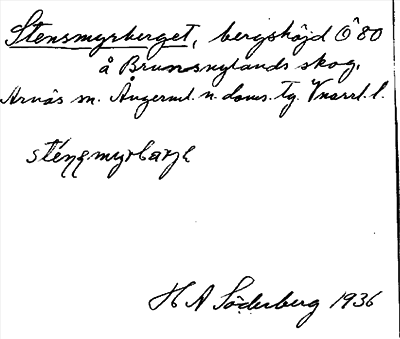 Stensmyrberget, bergshöjd Ö 80
å Brunsnylands skog.
Arnäs sn. Ångerml. n. doms. Tg. Vnorrl. l.
H A Söderberg 1936